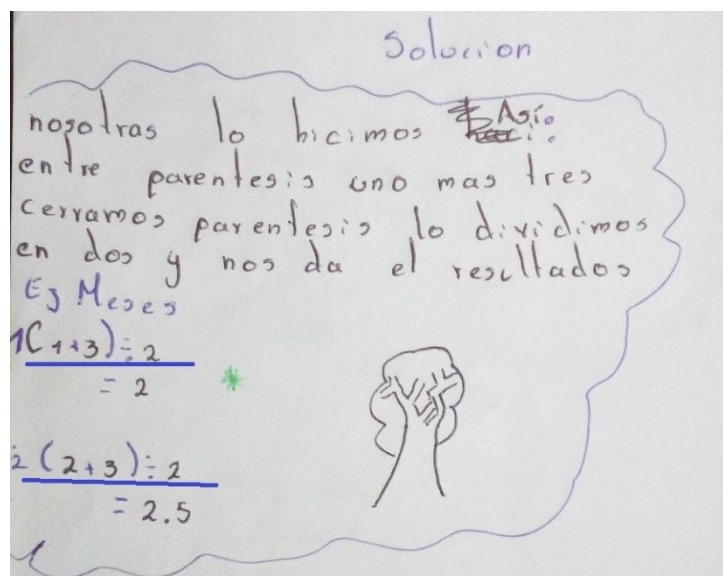 Solucion
nosotras lo hicimos Así:
entre parentesis uno mas tres
cerramos parentesis lo dividimos
en dos y nos da el resultados
Ej Meses
1(1+3)÷2
= 2
2(2+3)÷2
= 2.5